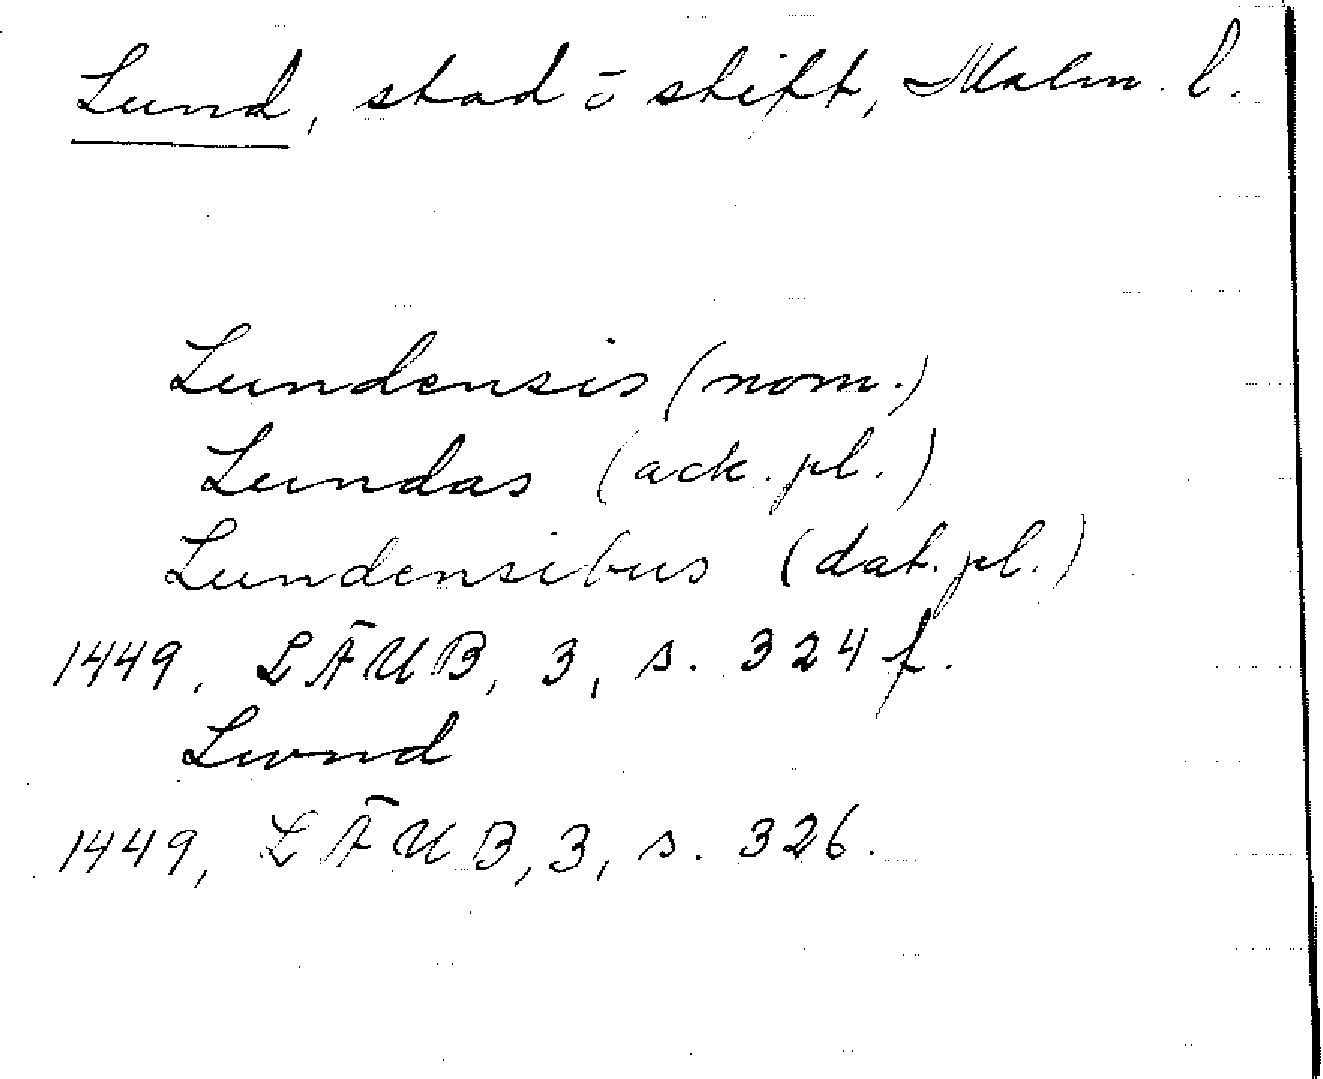 Lund, stad ō stift, Malm. l.
Lundensis (nom.)
Lundas (ack. pl.)
Lundensibus (dat. pl.)
1449, LÄUB, 3, s. 324 f.
Lwnd
1449, LÄUB, 3, s. 326.